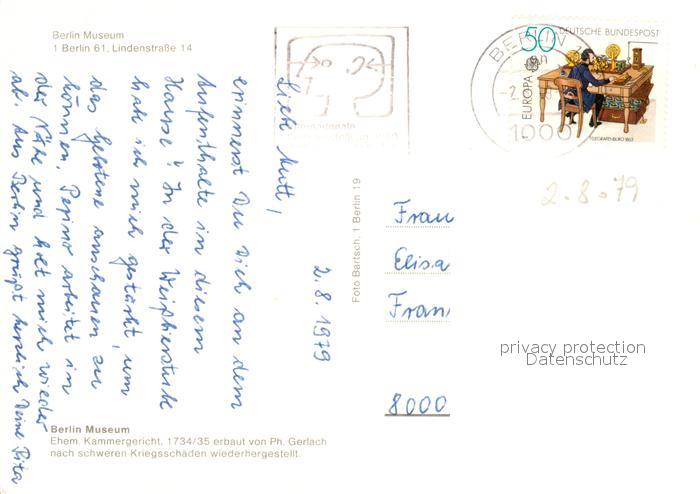 Berlin Museum
1 Berlin 61, Lindenstraße 14
Liebe Mutti,
erinnerst Du Dich an dem
Aufenthalte in diesem
Hause? In der Weißbierstube
habe ich mich gestärkt, um
das Gebotene anschauen zu
können. Pepino arbeitet in
der Nähe und holt mich wieder
ab. Aus Berlin grüßt herzlich Deine Rita
2.8.1979
Berlin Museum
Ehem. Kammergericht, 1734/35 erbaut von Ph. Gerlach
nach schweren Kriegsschäden wiederhergestellt.
Foto Bartsch, 1 Berlin 19
BERLIN
1000
50
DEUTSCHE BUNDESPOST
EUROPA
TELEGRAFENBÜRO 1863
2.8.79
Frau
Elisa
Fran
8000
privacy protection
Datenschutz